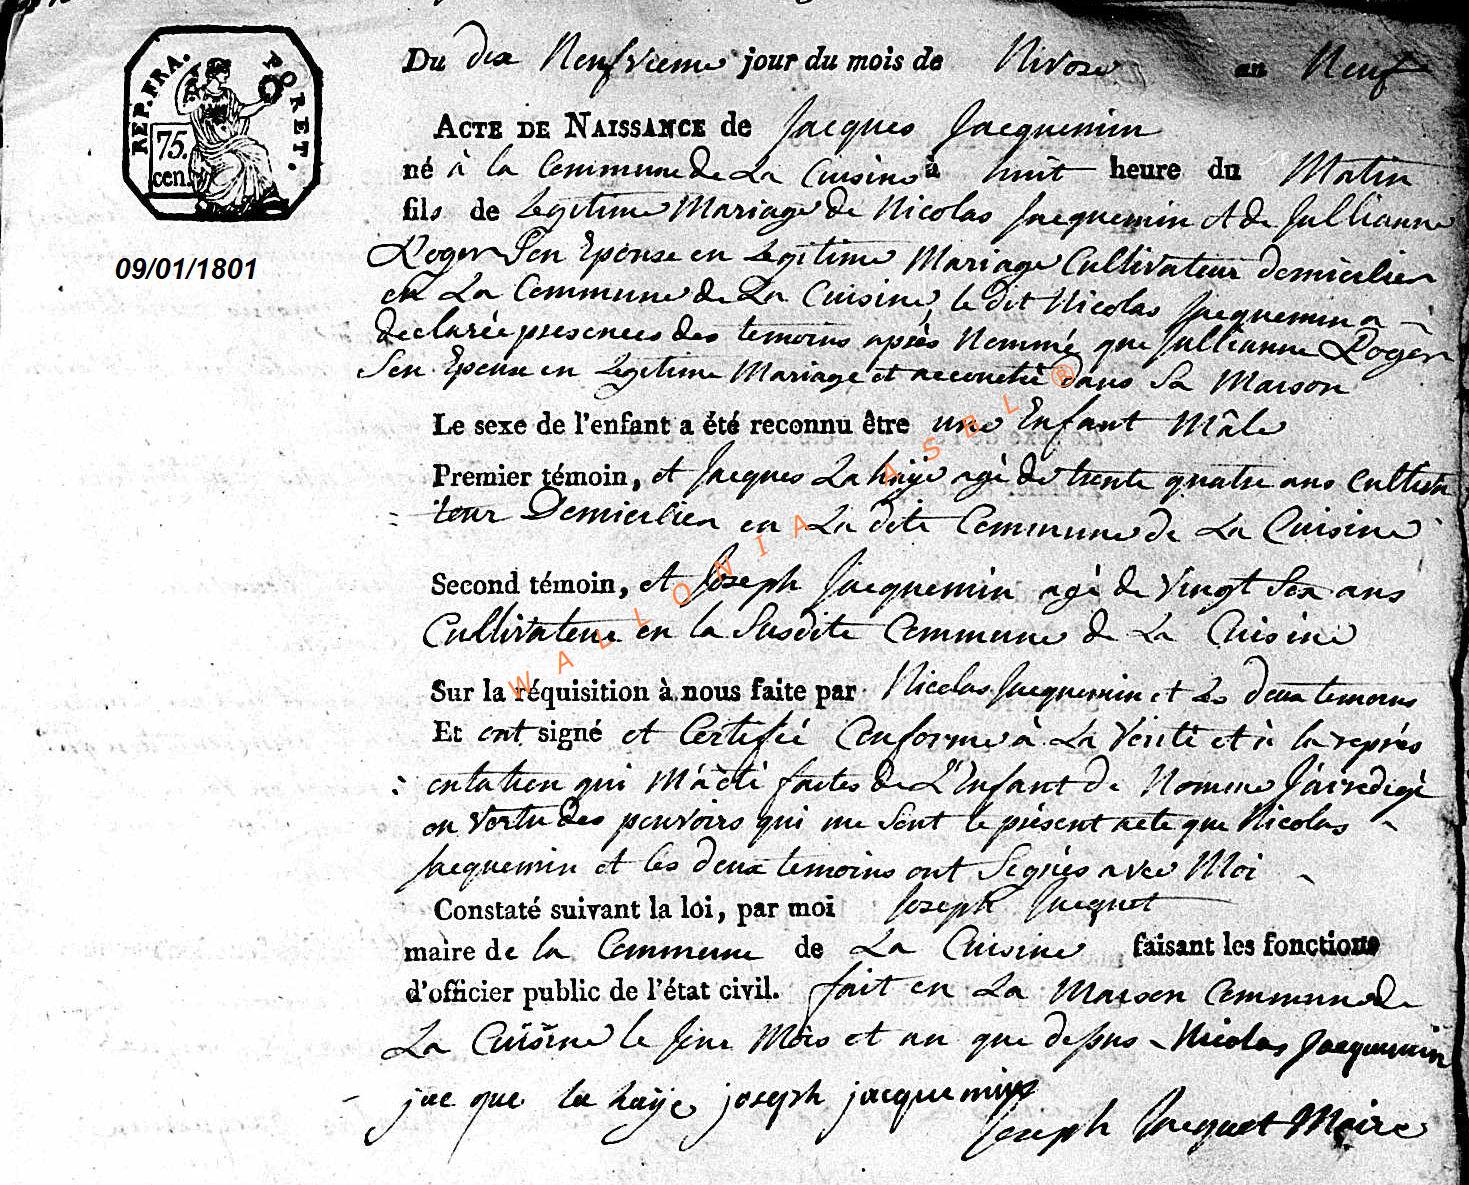 REP. FRA. FORET.
75. cen.
09/01/1801
Du dix Neufvieme jour du mois de Nivose an Neuf
ACTE DE NAISSANCE de Jacques Jacquemin
né à la Commune de La Cuisine à huit heure du Matin
fils de Legitime Mariage de Nicolas Jacquemin et de Jullianne
Roger Son Epouse en Legitime Mariage Cultivateur domicilier
en La Commune de La Cuisine, le dit Nicolas Jacquemin a
declarée presences des temoins après Nommé que Jullianne Roger
Son Epouse en Legitime Mariage et accouchée dans Sa Maison
Le sexe de l'enfant a été reconnu être une Enfant Mâle
Premier témoin, et Jacques La haije agé de trente quatre ans Cultiva
= teur Domicilier en La dite Commune de La Cuisine
Second témoin, et Joseph Jacquemin agé de Vingt Six ans
Cultivateur en la Susdite Commune de La Cuisine
Sur la réquisition à nous faite par Nicolas Jacquemin et Les deux temoins
Et ont signé et Certifié Conforme à La Vérité et à la reprès
: entation qui M'a été faites de L'Enfant de Nomme J'ai redigé
en Vertu des pouvoirs qui me Sont le présent acte que Nicolas
Jacquemin et les deux temoins ont Signés avec Moi
Constaté suivant la loi, par moi Joseph Jacquet
maire de la Commune de La Cuisine faisant les fonctions
d'officier public de l'état civil. fait en La Maison Commune de
La Cuisine le Jour Mois et an que dessus Nicolas Jacquemin
jac que la haije joseph jacquemin
Joseph Jacquet Maire
WALLONIA ASBL ®